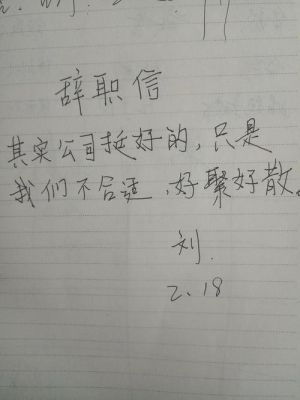 辞职信
其实公司挺好的，只是
我们不合适，好聚好散。
刘.
2.18